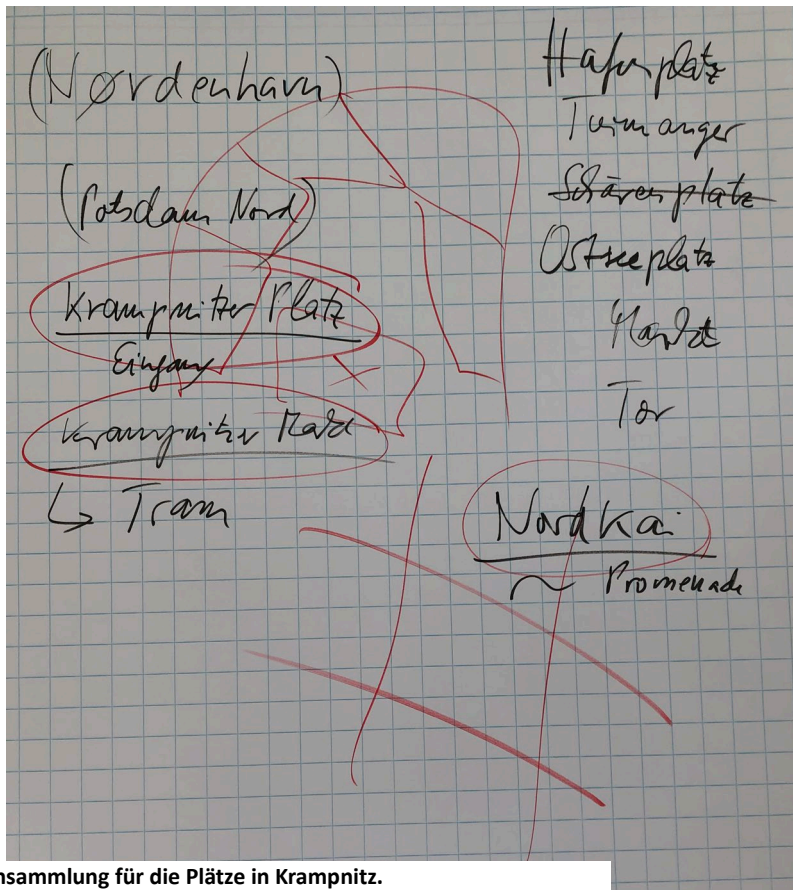 (Nørdenhavn)
(Potsdam Nord)
Krampnitzer Platz
Eingang
Krampnitzer Markt
↳ Tram
Hafenplatz
anger
Schärenplatz
Ostseeplatz
Markt
Tor
Nordkai
~ Promenade
nsammlung für die Plätze in Krampnitz.